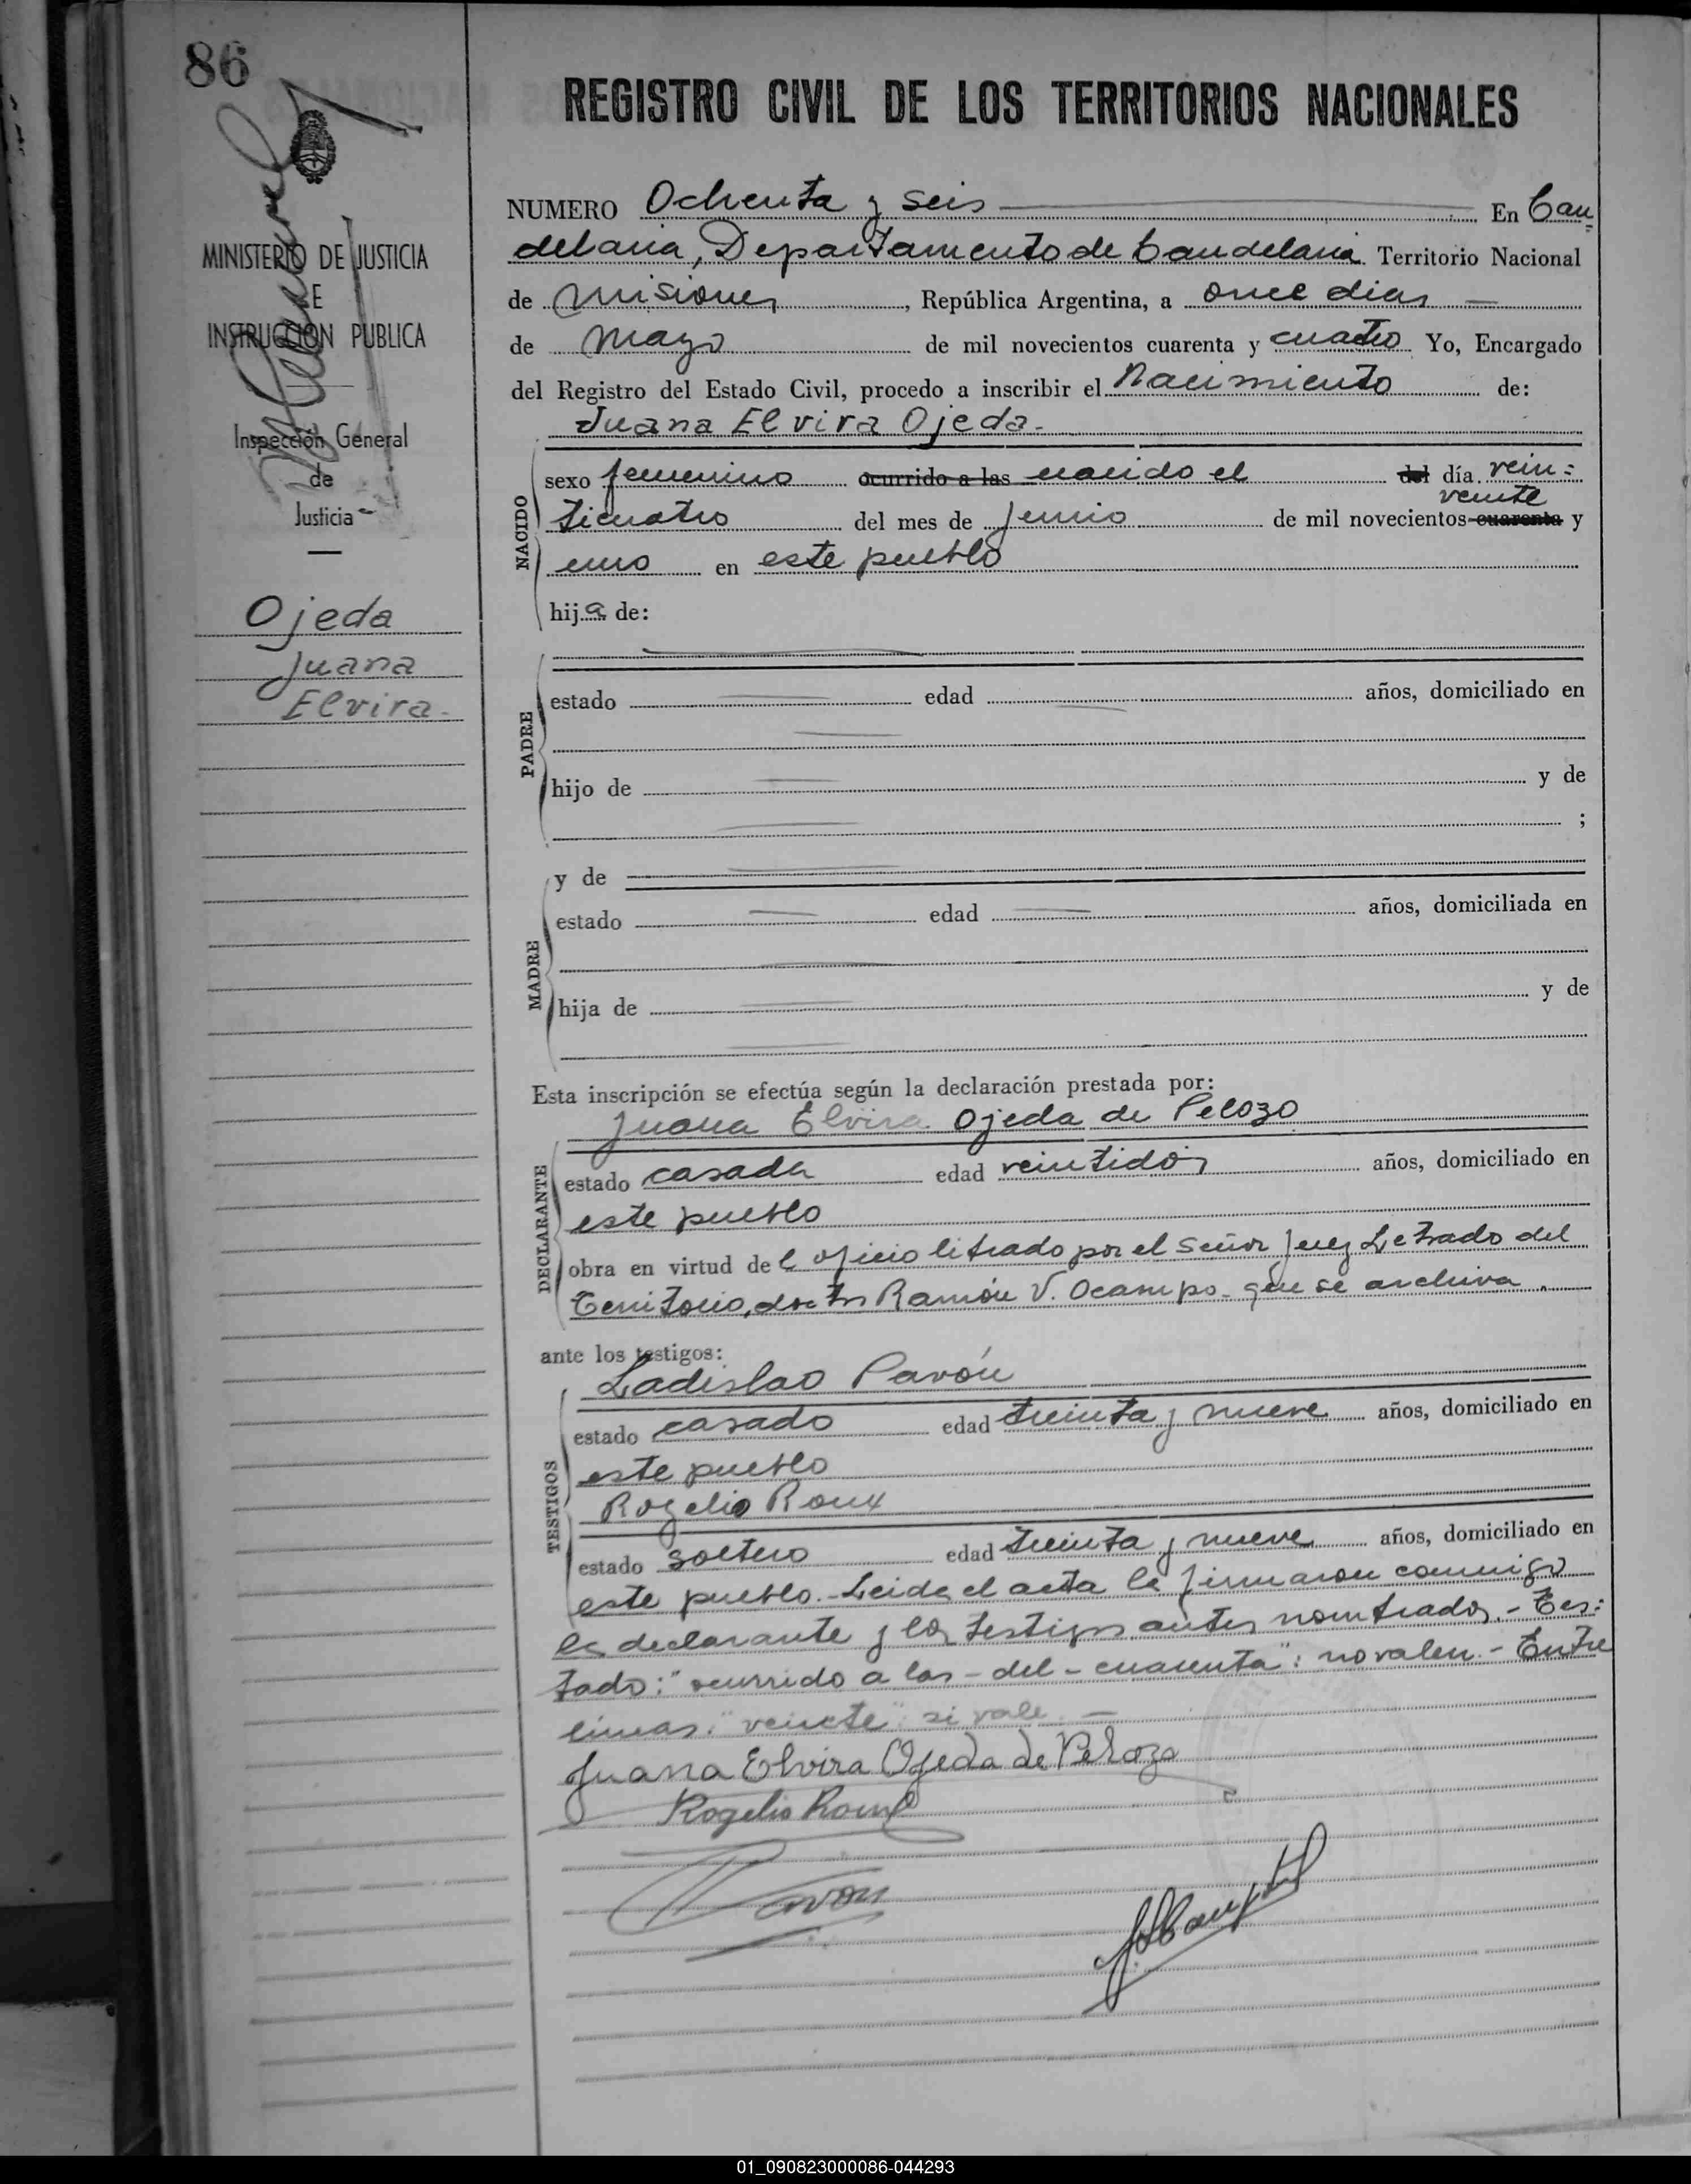 86
REGISTRO CIVIL DE LOS TERRITORIOS NACIONALES
MINISTERIO DE JUSTICIA
E
INSTRUCCION PUBLICA
Inspección General
de
Justicia
Ojeda
Juana
Elvira.-
NUMERO Ochenta y seis En Can
delaria, Departamento de Candelaria. Territorio Nacional
de Misiones, República Argentina, a once dias
de Mayo de mil novecientos cuarenta y cuatro Yo, Encargado
del Registro del Estado Civil, procedo a inscribir el Nacimiento de:
Juana Elvira Ojeda.-
NACIDO
sexo femenino ocurrido a las nacido el del día vein=
veinte
ticuatro del mes de Junio de mil novecientos cuarenta y
uno en este pueblo
hija de:
PADRE
estado edad años, domiciliado en
hijo de y de
;
MADRE
y de
estado edad años, domiciliada en
hija de y de
Esta inscripción se efectúa según la declaración prestada por:
Juana Elvira Ojeda de Pelozo
DECLARANTE
estado casada edad veintidós años, domiciliado en
este pueblo
obra en virtud del oficio librado por el Señor Juez Letrado del
Territorio, doctor Ramón V. Ocampo- que se archiva.
ante los testigos:
TESTIGOS
Ladislao Pavón
estado casado edad treinta y nueve años, domiciliado en
este pueblo
Rogelio Roux
estado soltero edad treinta y nueve años, domiciliado en
este pueblo.- Leida el acta la firmaron conmigo
la declarante y los testigos antes nombrados.- Tes=
tado: "ocurrido a las - del - cuarenta": no valen.- Entre
lineas: "veinte" si vale.-
Juana Elvira Ojeda de Pelozo
Rogelio Roux
Pavón
01_090823000086-044293